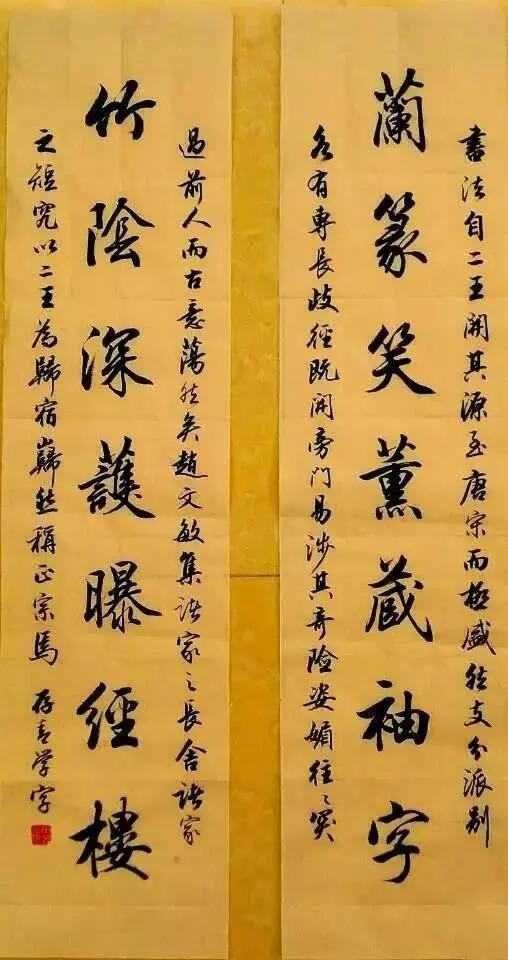 書法自二王開其源至唐宋而極盛然支分派別
蘭篆笑薰蔵袖字
各有專長歧徑既開旁門易涉其奇險姿媚往〻突
過前人而古意蕩然矣趙文敏集諸家之長舍諸家
竹陰深護曝經樓
之短究以二王為歸宿巋然稱正宗焉 存青学字